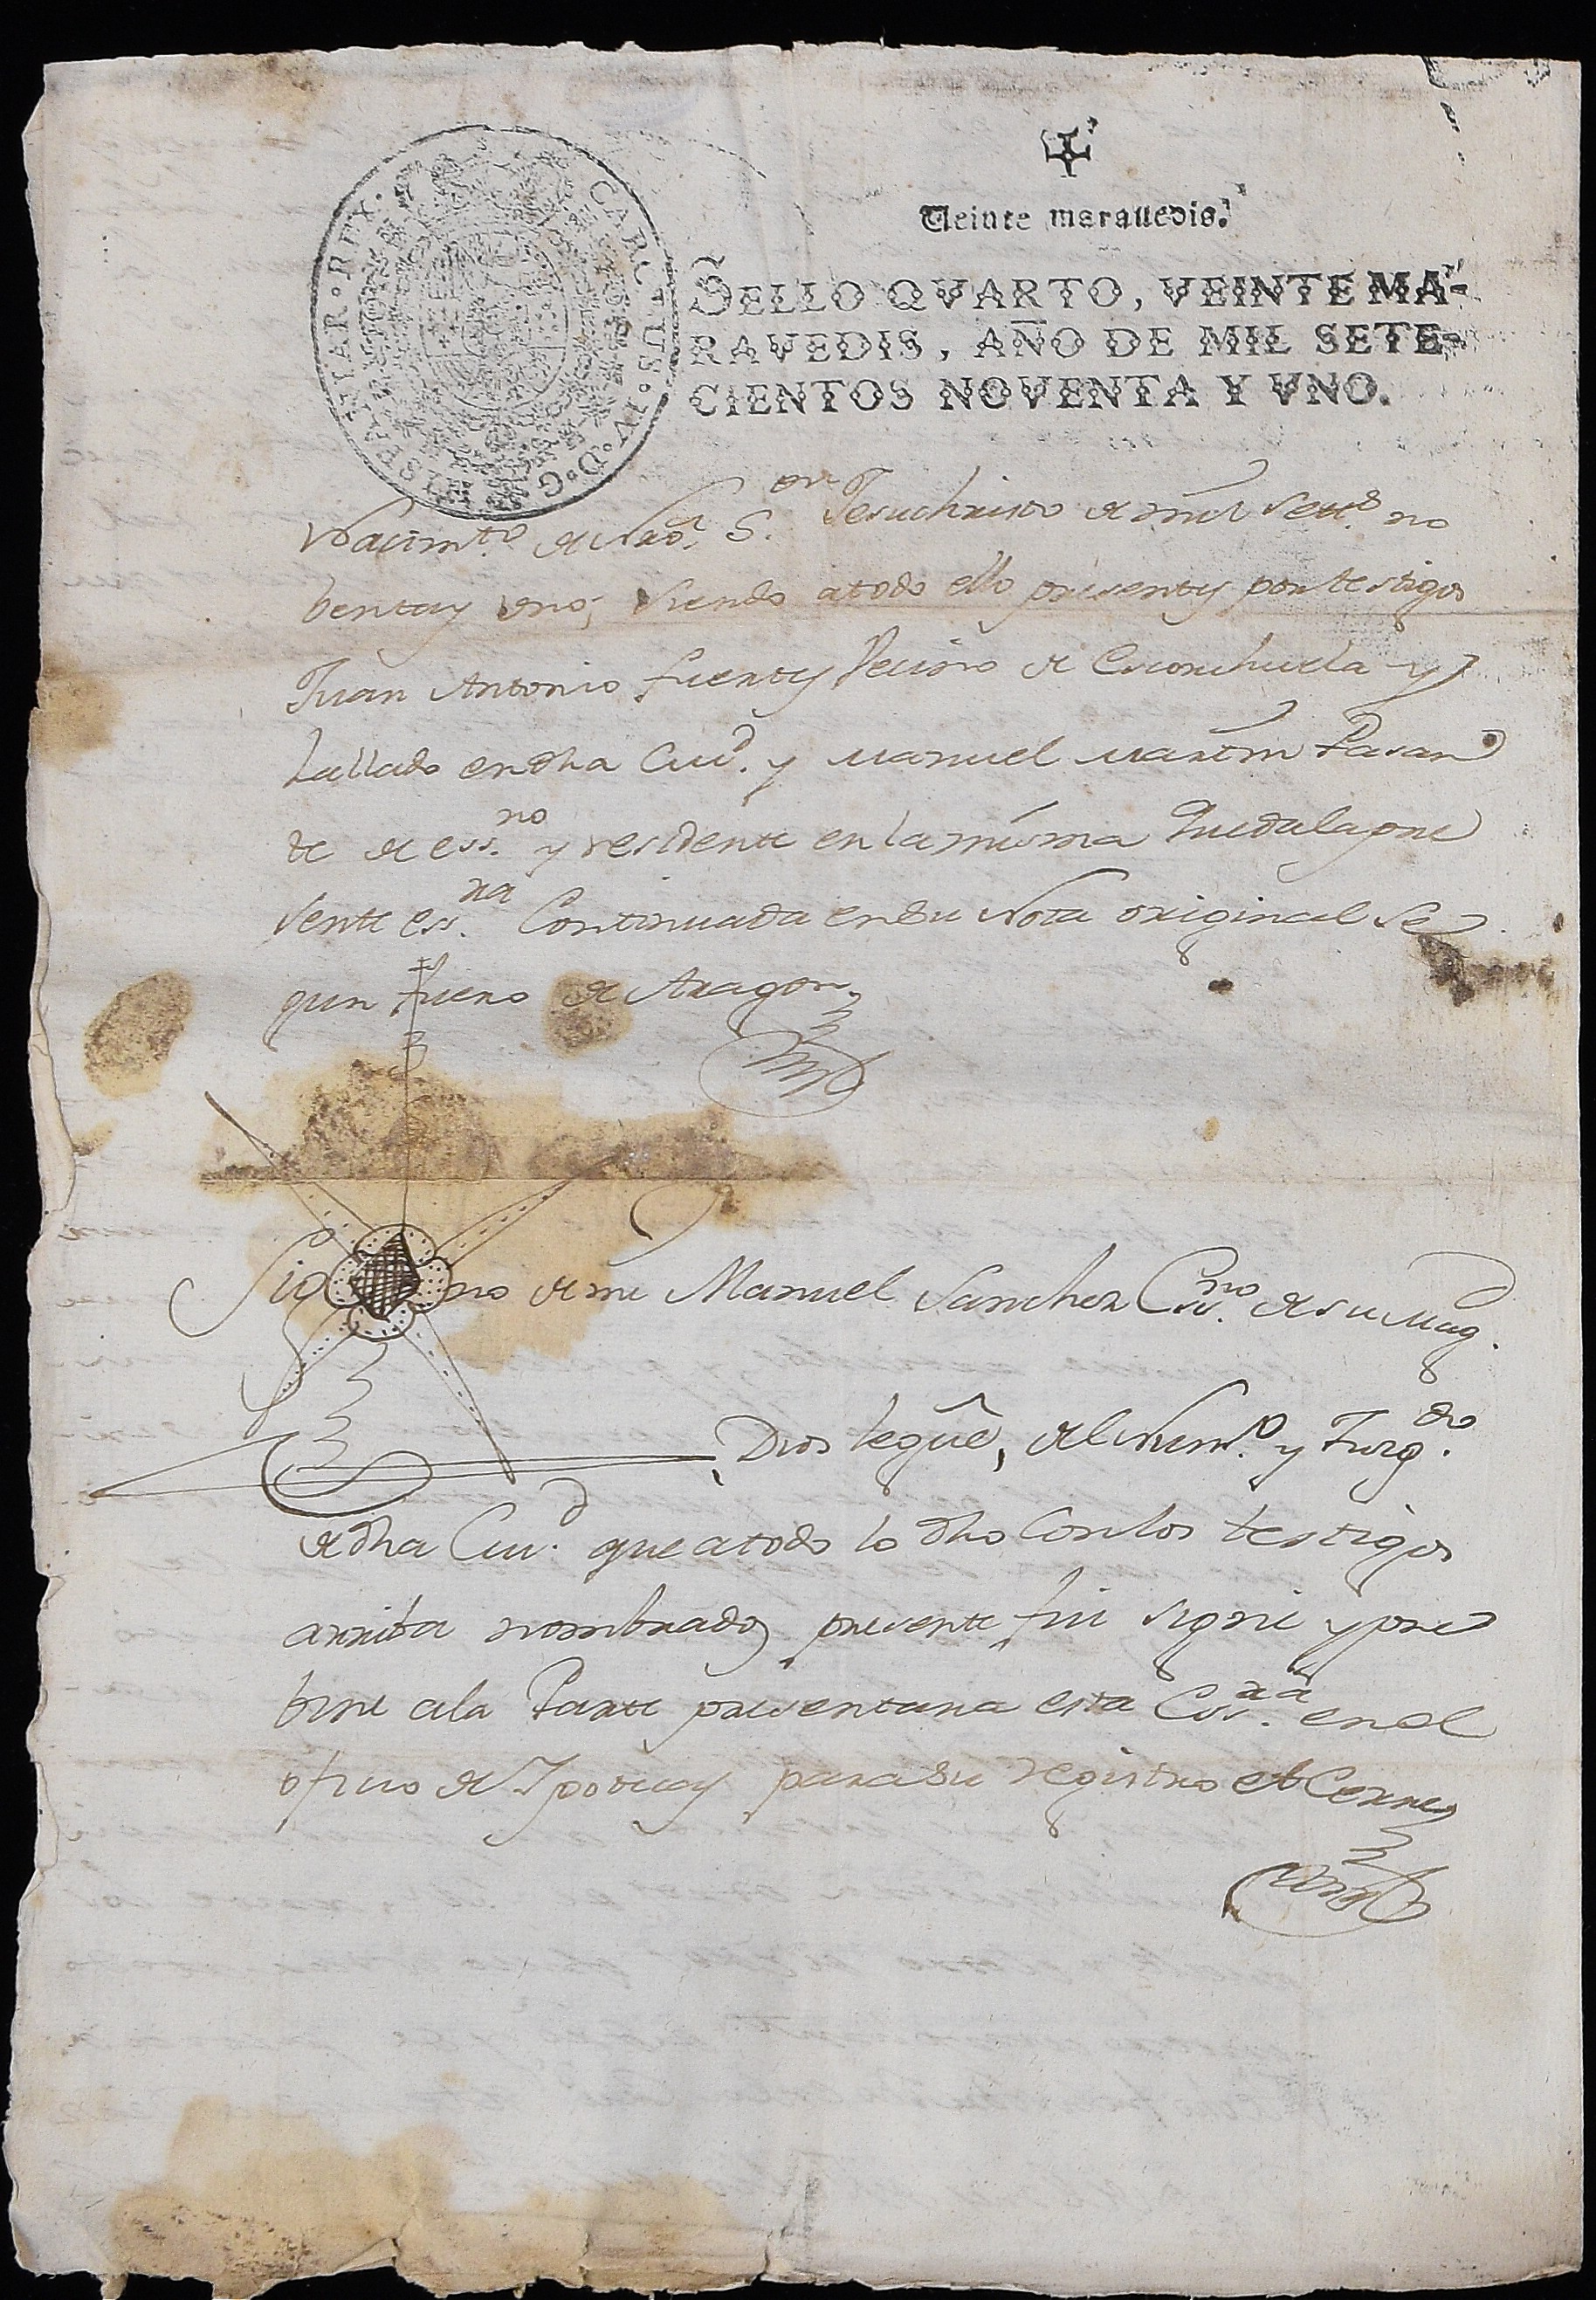 CAROLUS · IV · D · G · HISPANIAR · REX ·
Veinte marauedis.
SELLO QVARTO, VEINTE MA-
RAVEDIS, AÑO DE MIL SETE-
CIENTOS NOVENTA Y VNO.
Nacim.to de Nro. S.or Jesuchristo de mil sett.s no
benta y uno, siendo a todo ello presentes por testigos
Juan Antonio fuentes Vecino de Escorihuela y
hallado en dha Ciud. y Manuel Martin Pasan
te de ess.no y residente en la misma Queda la pre
sente ess.ra Continuada en su Nota original Se
gun fuero de Aragon
Sig no de mi Manuel Sanchez Ess.no de su Mag.
Dios legue, del Num.o y Juzg.do
de dha Ciud. que a todo lo dho Con los testigos
arriba nombrados presente fui signe y pre
bine a la Parte presentara esta Ess.ra en el
oficio de Ipotecas para su registro et Cerre